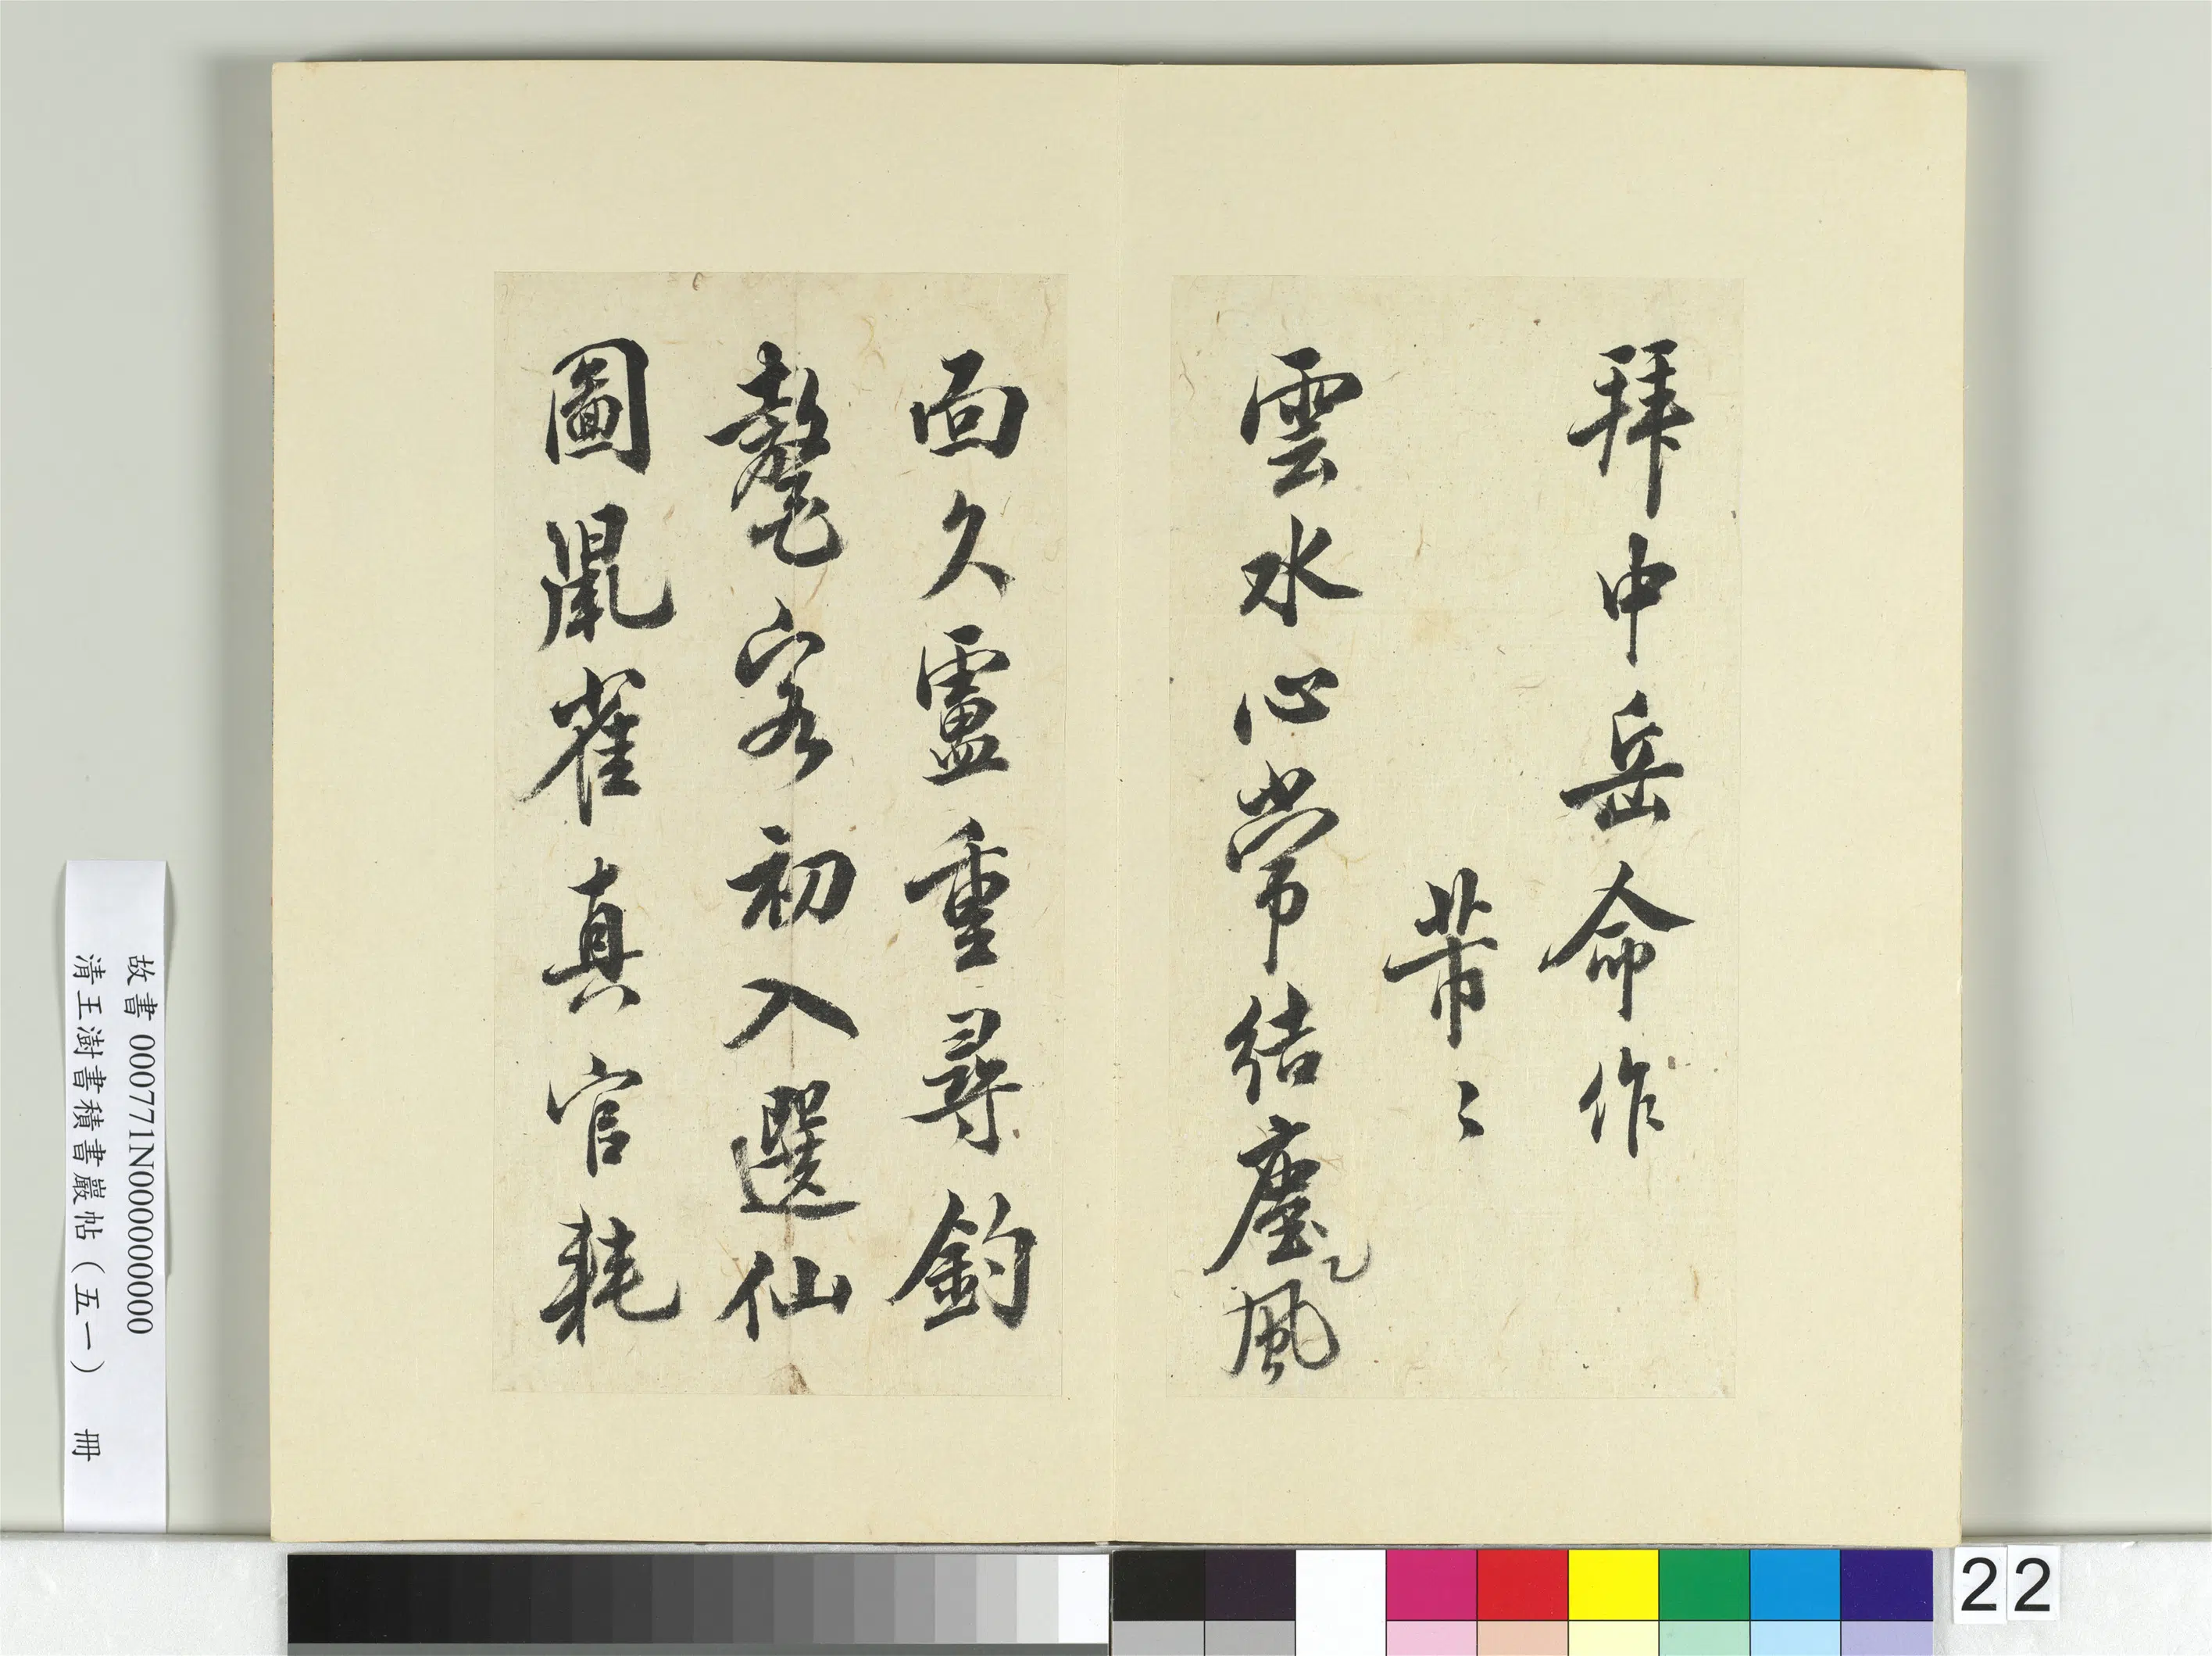 拜中岳命作
芾〻
雲水心常結塵乙風
面久盧重尋釣
鼇客初入選仙
圖鼠雀真官耗
故書 000771N000000000
清王澍書積書巖帖（五一） 冊
22